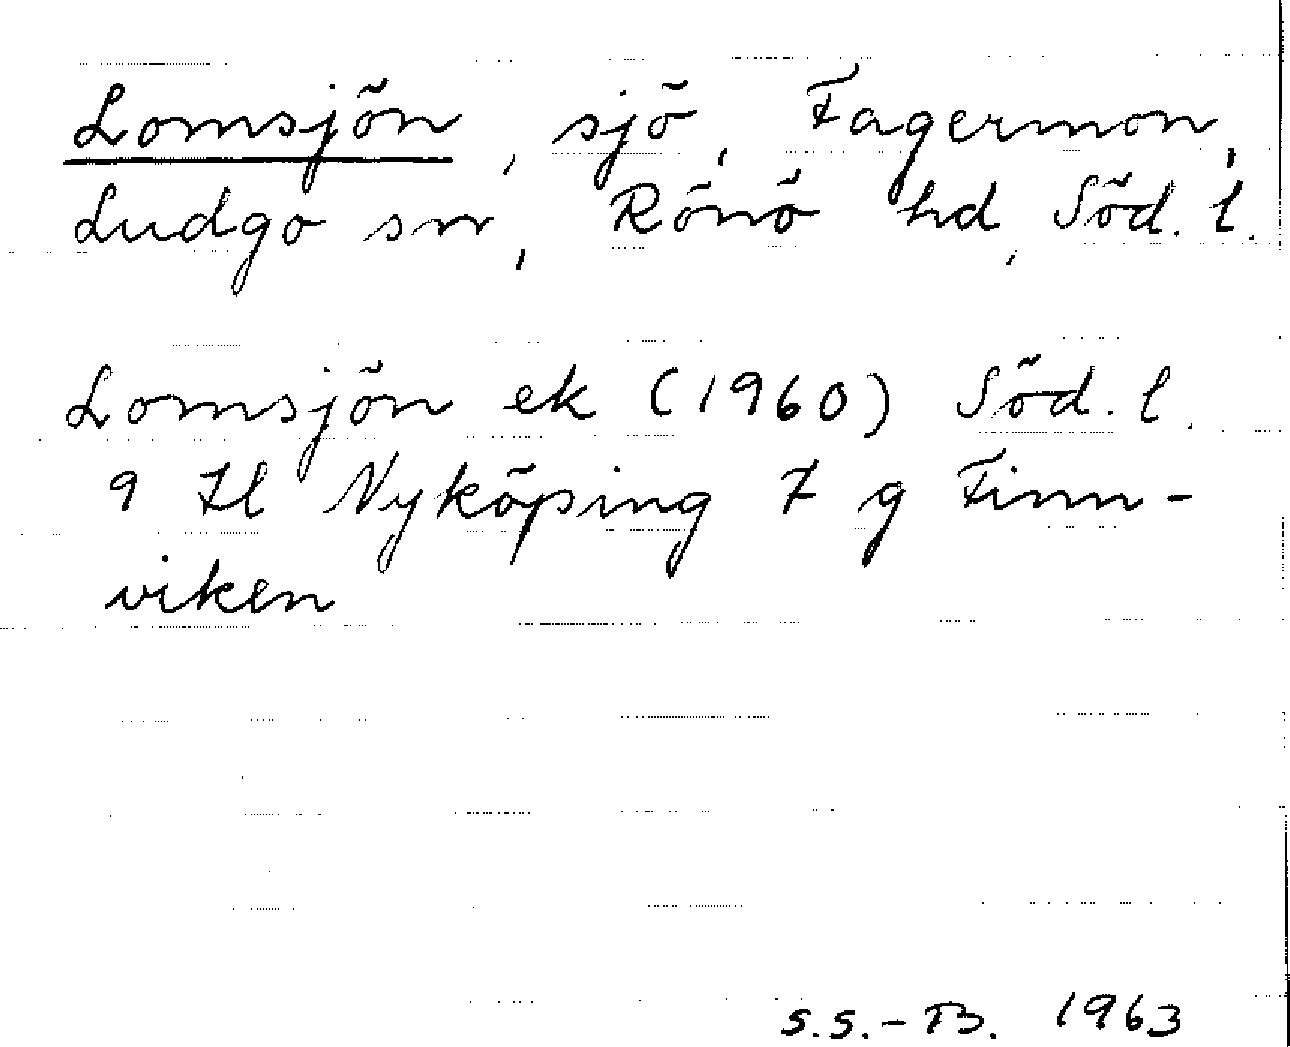 Lomsjön, sjö, Fagermon,
Ludgo sn, Rönö hd, Söd. l.
Lomsjön ek (1960) Söd. l.
9 Il Nyköping 7 g Finn-
viken
S.S.-B. 1963